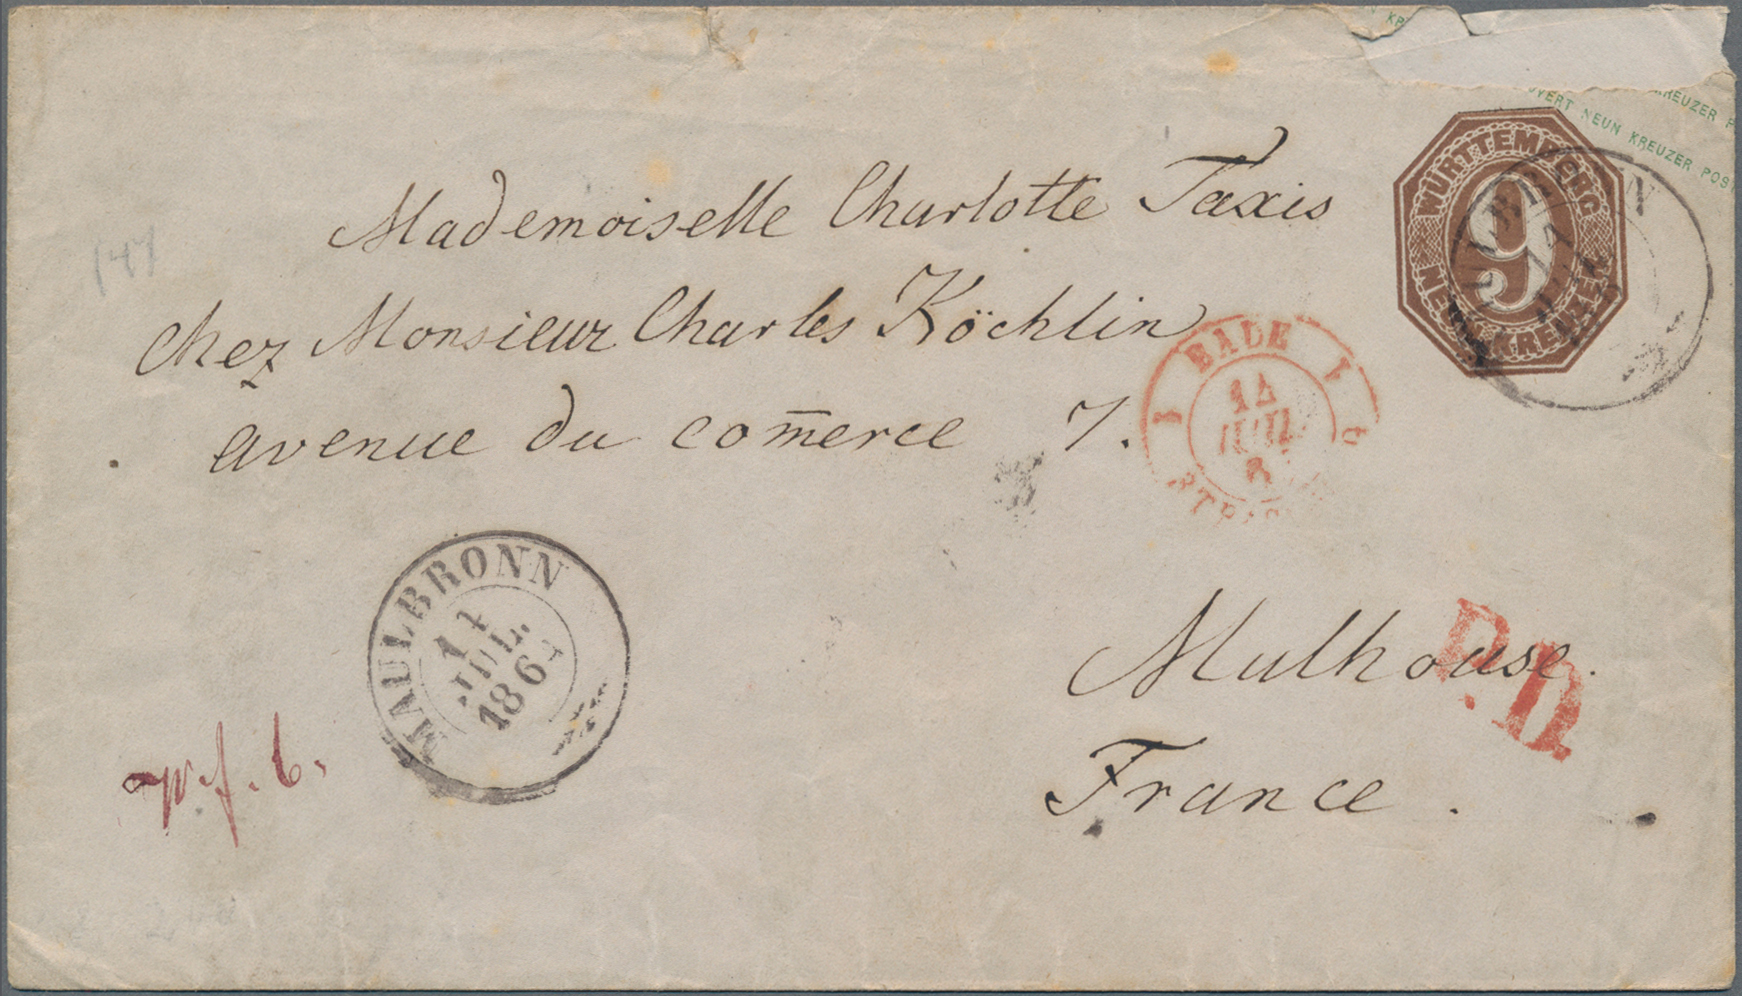 KREUZER P
UVERT NEUN KREUZER POST
WÜRTTEMBERG
9
NEUN KREUZER
Mademoiselle Charlotte Taxis
chez Monsieur Charles Köchlin
avenue du com̅erce 7.
1 BALE 1
14
JUIL
6
MAULBRONN
JUL.
186
Mulhouse.
P.D.
France.
W.f. 6.
141